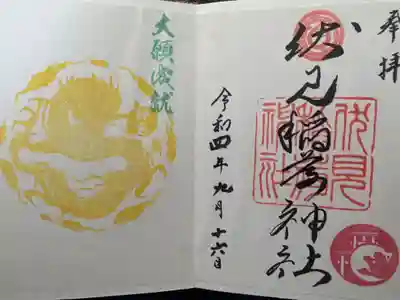 奉拝
伏見稲荷神社
伏見稲荷神社
令和四年九月十六日
大願成就